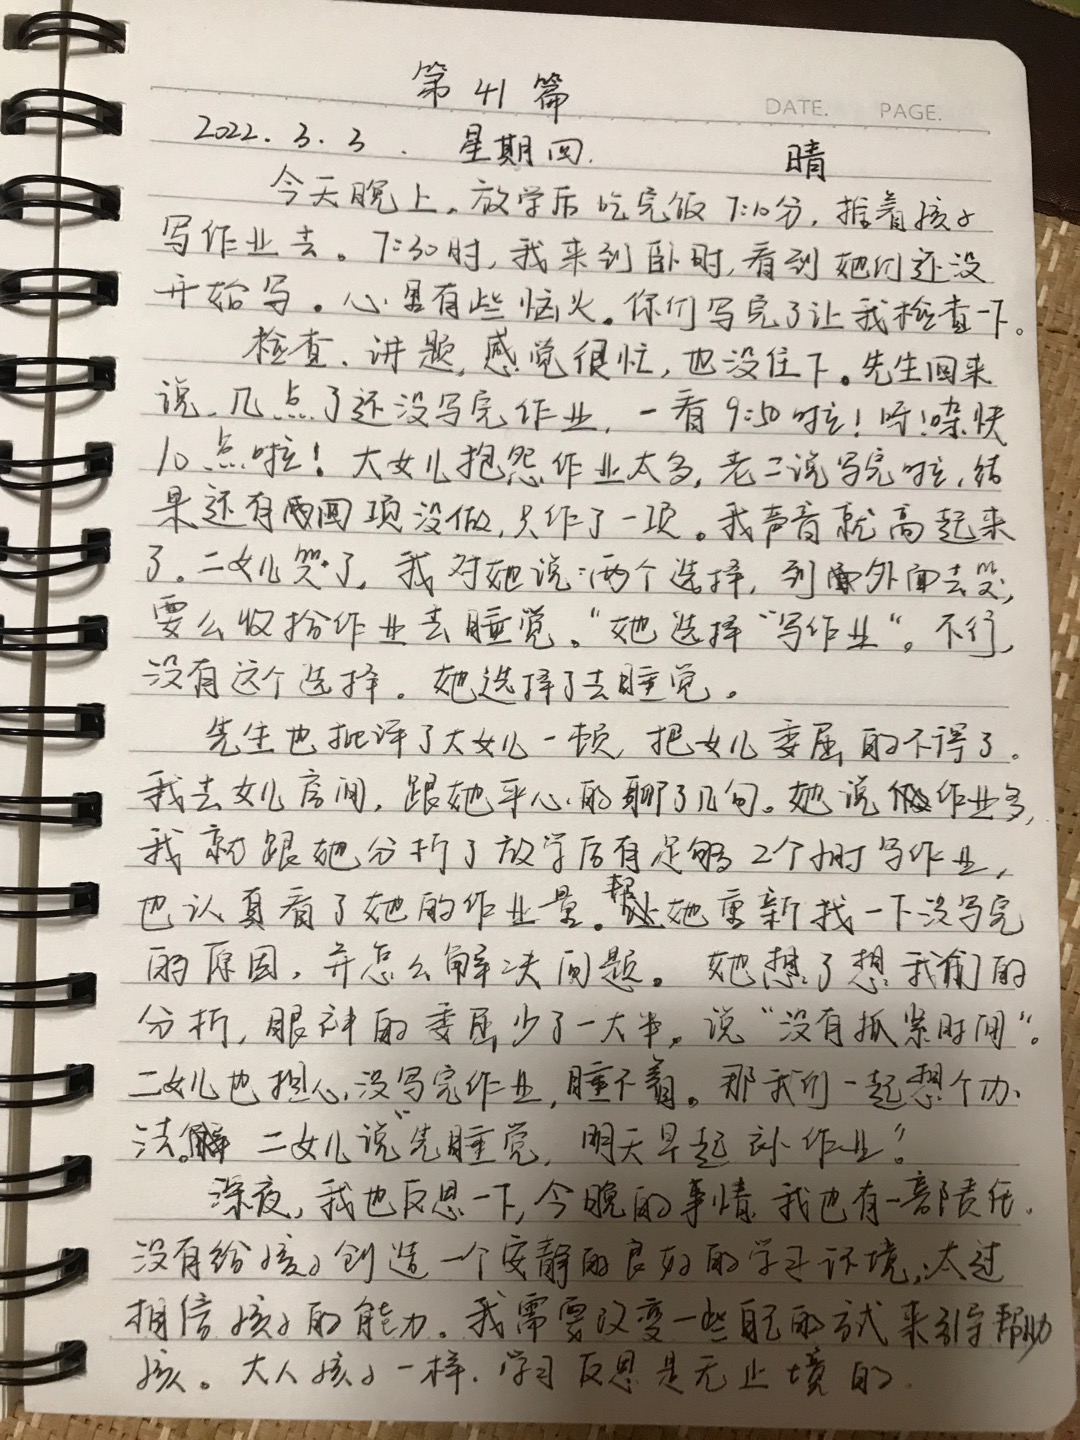 第41篇
DATE. PAGE.
2022.3.3. 星期四. 晴
今天晚上。放学后吃完饭7:10分，指着孩子
写作业去。7:30时，我来到卧时，看到她们还没
开始写。心里有些恼火。你们写完了让我检查一下。
检查、讲题，感觉很忙，也没住下。先生回来
说，几点了还没写完作业，一看9:50啦！呀！咋快
10点啦！大女儿抱怨作业太多，老二说写完啦，结
果还有两项没做，只作了一项。我声音就高起来
了。二女儿哭了，我对她说：两个选择，到外面去哭，
要么收拾作业去睡觉。“她选择“写作业“。不行，
没有这个选择。她选择了去睡觉。
先生也批评了大女儿一顿，把女儿委屈的不得了。
我去女儿房间，跟她平心的聊了几句。她说作业多，
我就跟她分析了放学后有足够2个小时写作业，
也认真看了她的作业量。帮她重新找一下没写完
的原因，并怎么解决问题。她想了想我们的
分析，眼神的委屈少了一大半。说“没有抓紧时间“。
二女儿也担心，没写完作业，睡不着。那我们一起想个办
法。二女儿说“先睡觉，明天早起补作业”。
深夜，我也反思一下，今晚的事情，我也有一部责任。
没有给孩子创造一个安静的良好的学习环境，太过
相信孩子的能力。我需要改变一些自己的方式来引导帮助
孩。大人孩子一样，学习反思是无止境的.